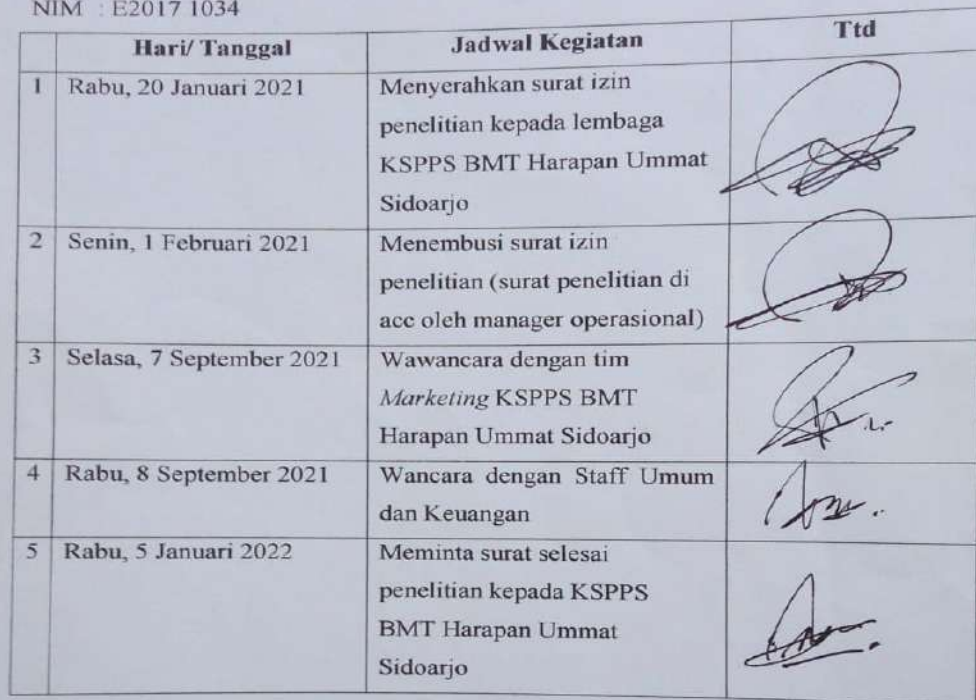 NIM : E2017 1034
Hari/ Tanggal Jadwal Kegiatan Ttd
1 Rabu, 20 Januari 2021 Menyerahkan surat izin
penelitian kepada lembaga
KSPPS BMT Harapan Ummat
Sidoarjo
2 Senin, 1 Februari 2021 Menembusi surat izin
penelitian (surat penelitian di
acc oleh manager operasional)
3 Selasa, 7 September 2021 Wawancara dengan tim
Marketing KSPPS BMT
Harapan Ummat Sidoarjo
4 Rabu, 8 September 2021 Wancara dengan Staff Umum
dan Keuangan
5 Rabu, 5 Januari 2022 Meminta surat selesai
penelitian kepada KSPPS
BMT Harapan Ummat
Sidoarjo